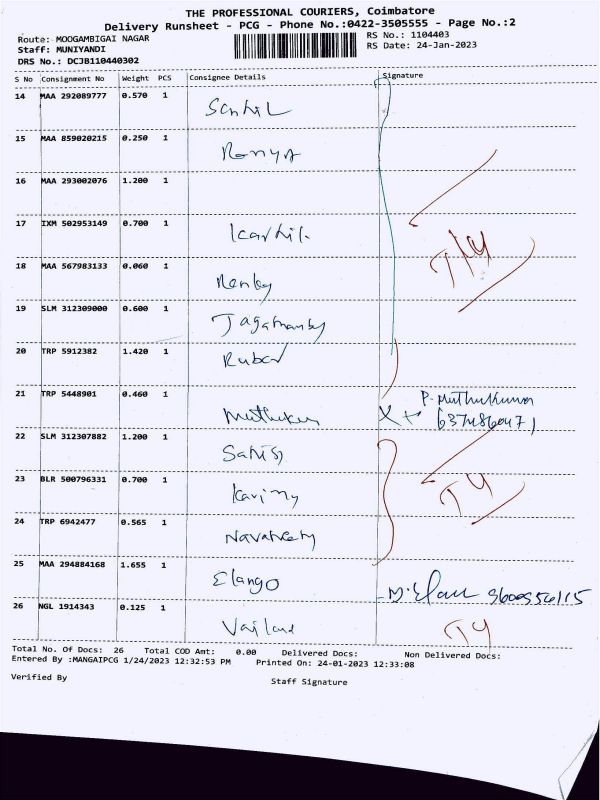 THE PROFESSIONAL COURIERS, Coimbatore
Delivery Runsheet - PCG - Phone No.:0422-3505555 - Page No.:2
Route: MOOGAMBIGAI NAGAR
RS No.: 1104403
Staff: MUNIYANDI
RS Date: 24-Jan-2023
DRS No.: DCJB110440302
S No Consignment No Weight PCS Consignee Details Signature
14 MAA 292089777 0.570 1
15 MAA 859020215 0.250 1
Ramya
16 MAA 293002076 1.200 1
17 IXM 502953149 0.700 1
Karthik
18 MAA 567983133 0.060 1
19 SLM 312309000 0.600 1
20 TRP 5912382 1.420 1
21 TRP 5448901 0.460 1
P. Muthukumar
22 SLM 312307882 1.200 1
Satis
23 BLR 500796331 0.700 1
24 TRP 6942477 0.565 1
25 MAA 294884168 1.655 1
Elango
26 NGL 1914343 0.125 1
TY
Total No. Of Docs: 26 Total COD Amt: 0.00 Delivered Docs: Non Delivered Docs:
Entered By :MANGAIPCG 1/24/2023 12:32:53 PM Printed On: 24-01-2023 12:33:08
Verified By
Staff Signature